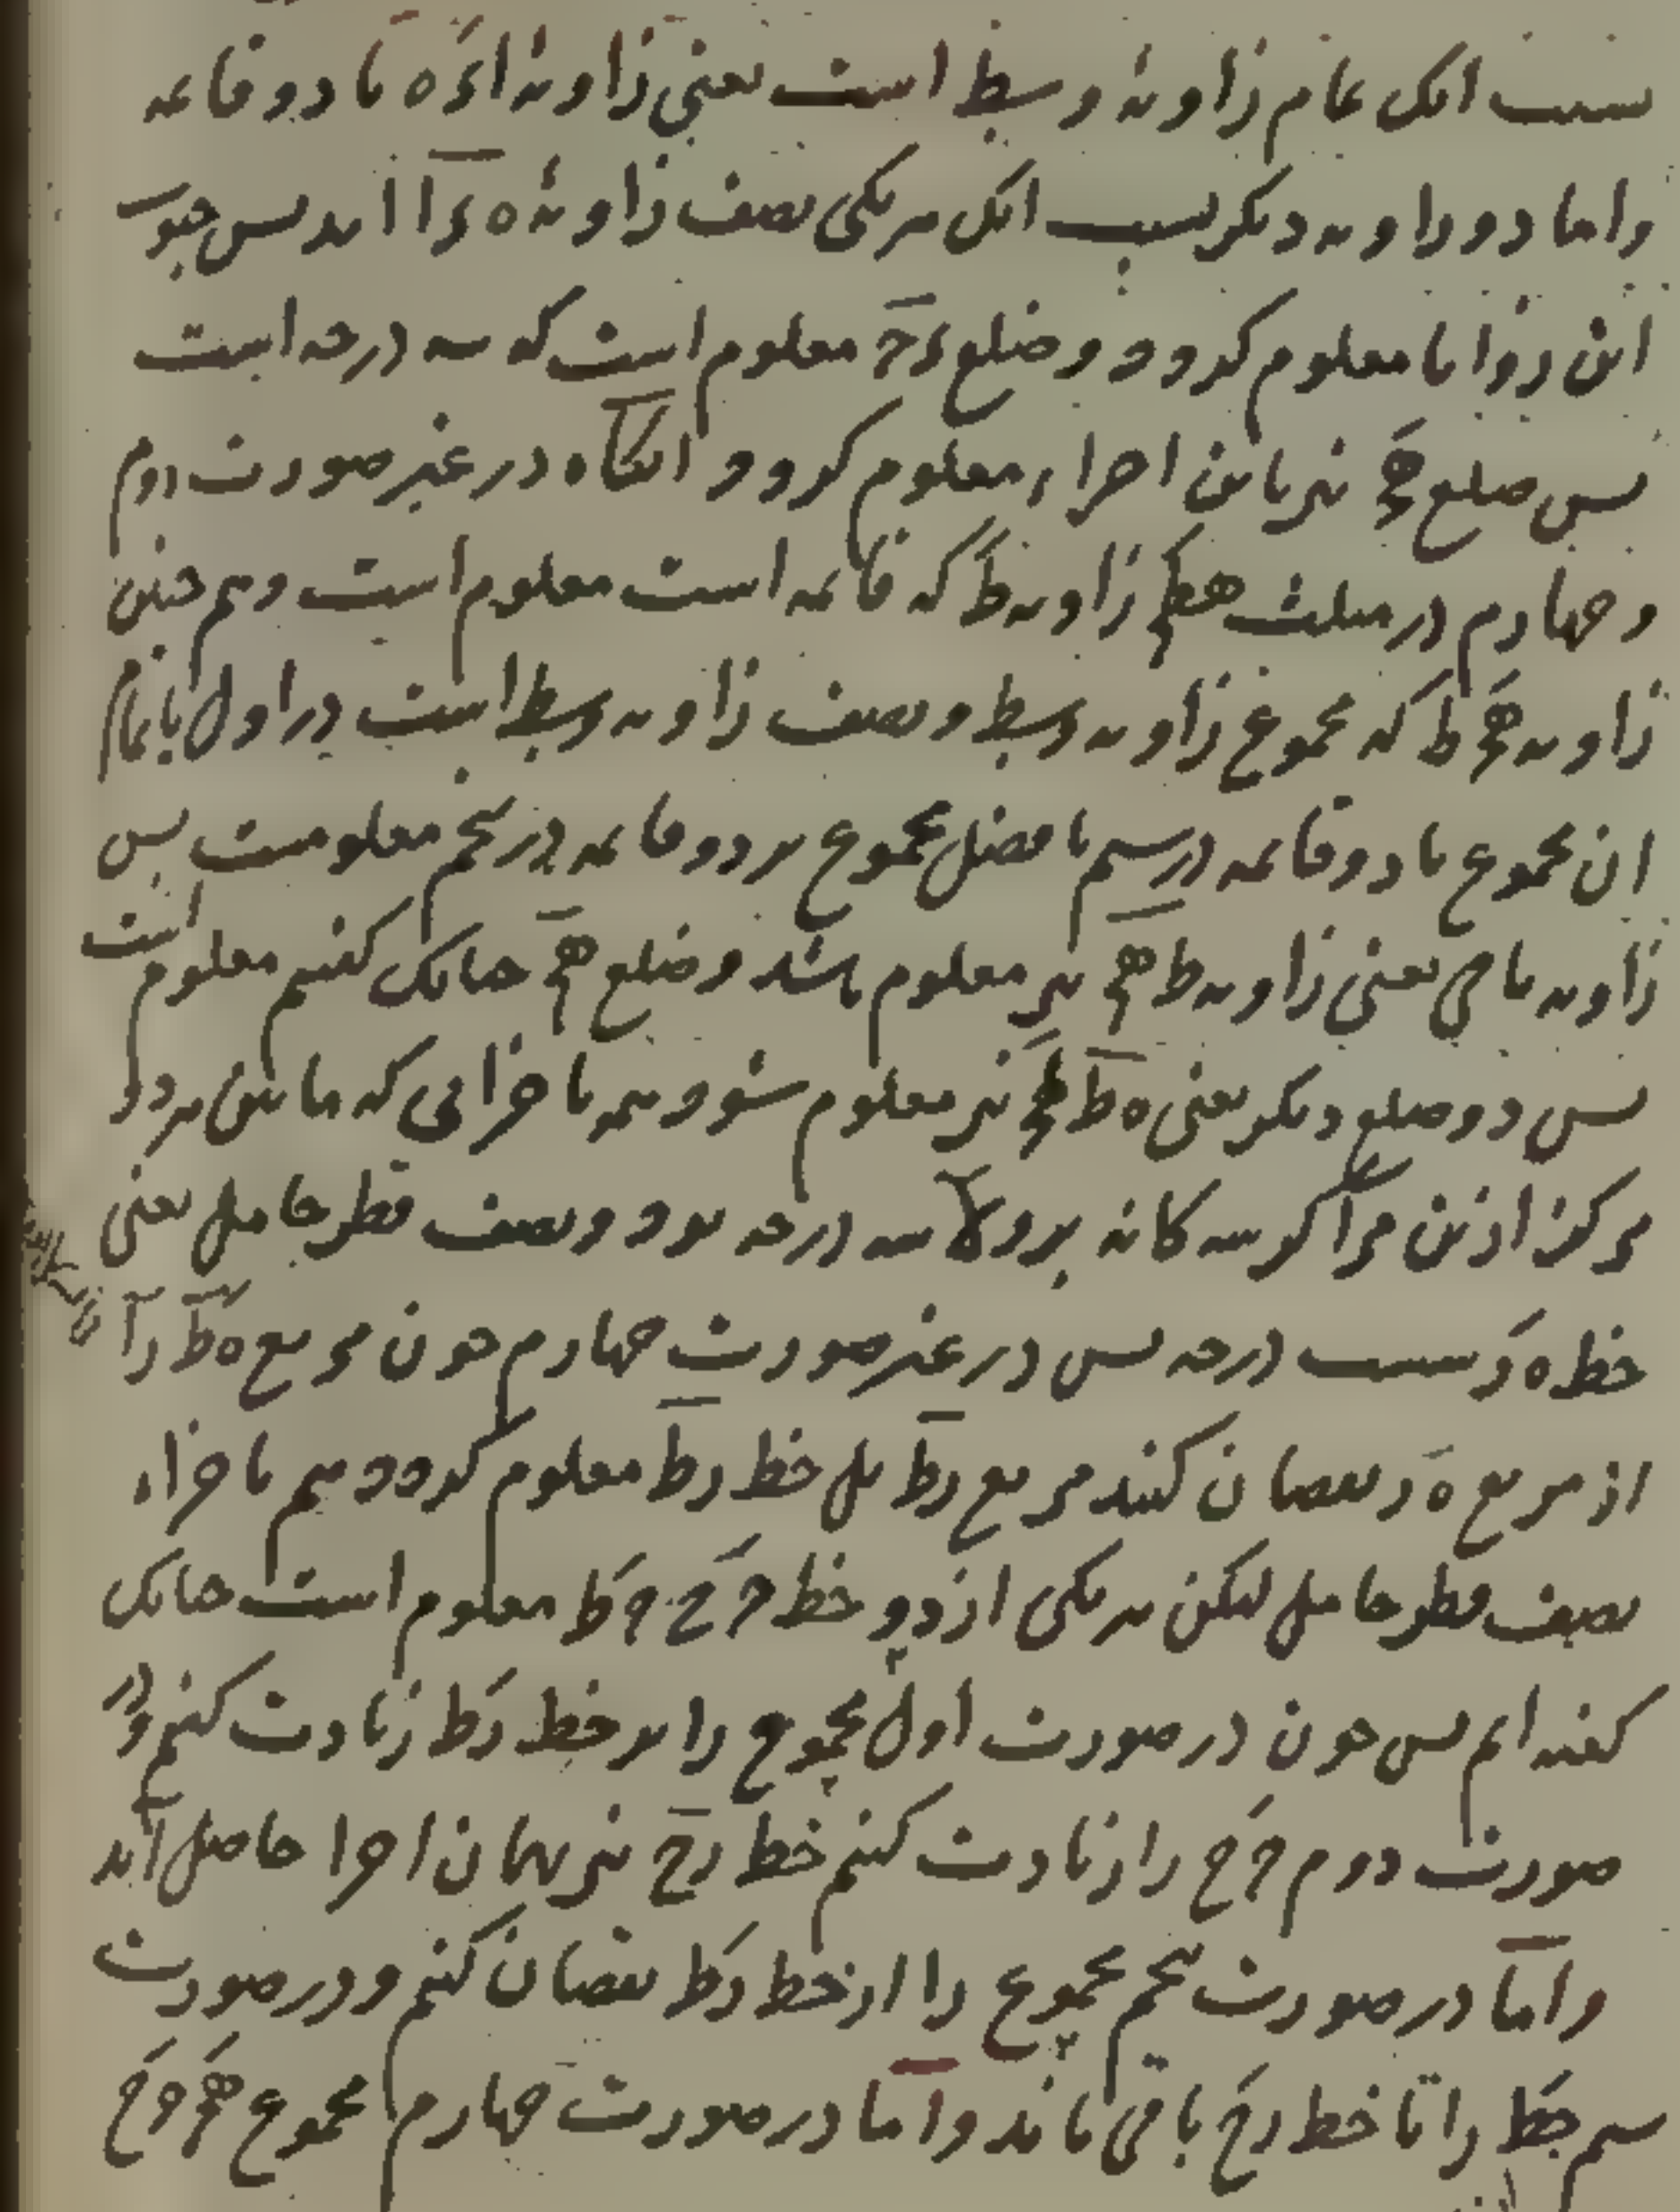 بسبب انک تمام زاویهٔ وسط است یعنی زاویهٔ اءه تا دو قائمه
واما دو زاویه دیکر بسبب انک هریکی نصف زاویهٔ ه ء ا اند بس جیوب
این زوایا معلوم کردد و ضلع ءح معلوم است که سه درجه است
بس ضلع هح نیز باین اجزاء معلوم کردد انکاه در غیر صورت دوم
و چهارم در مثلث هطح زاویه ط که قائمه است معلوم است و هم چنین
زاویه هح ط که مجموع زاویه وسط و نصف زاویه وسط است در اول یا تمام
ان مجموع تا دو قائمه در سیم یا فضل مجموع بر دو قائمه در پنجم معلومست بس
زاویه باقی یعنی زاویه ط هح نیز معلوم باشد و ضلع هح چنانک کفتیم معلوم است
بس دو ضلع دیکر یعنی ه ط طح نیز معلوم شود همه باجزایی که مابین هر دو
مرکز ازین مراکز سه کانه برولا سه درجه بود و نصف قطر حامل یعنی
خط ه ر شست درجه بس در غیر صورت چهارم چون مربع ه ط را
از مربع ه ر نقصان کنند مربع رط بل خط رط معلوم کردد هم باجزاء
نصف قطر حامل لیکن هر یکی از دو خط م ح و ح ط معلوم است چنانک
کفته ایم بس چون در صورت اول مجموع را بر خط رط زیادت کنیم و در
صورت دوم م ح را زیادت کنیم خط رح نیز بهمان اجزا حاصل آید
واما در صورت پنجم مجموع را از خط رط نقصان کنیم و در صورت
سیم حط را تا خط رح باقی ماند واما در صورت چهارم مجموع هح و ح